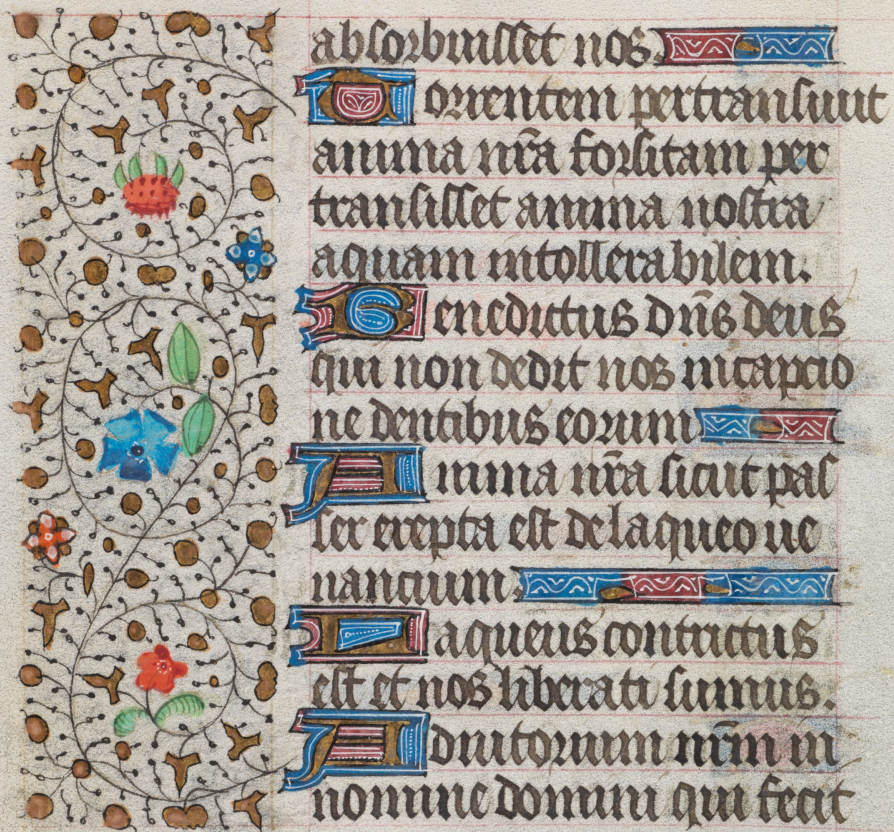 absorbuisset nos
Torrentem pertransiuit
anima nr̃a forsitam per
transisset anima nostra
aquam intollerabilem.
Benedictus dñs deus
qui non dedit nos incapcio
ne dentibus eorum
Anima nr̃a sicut pas
ser erepta est de laqueo ue
nancium.
Laqueus contrictus
est et nos liberati sumus.
Adiutorium nr̃m in
nomine domini qui fecit